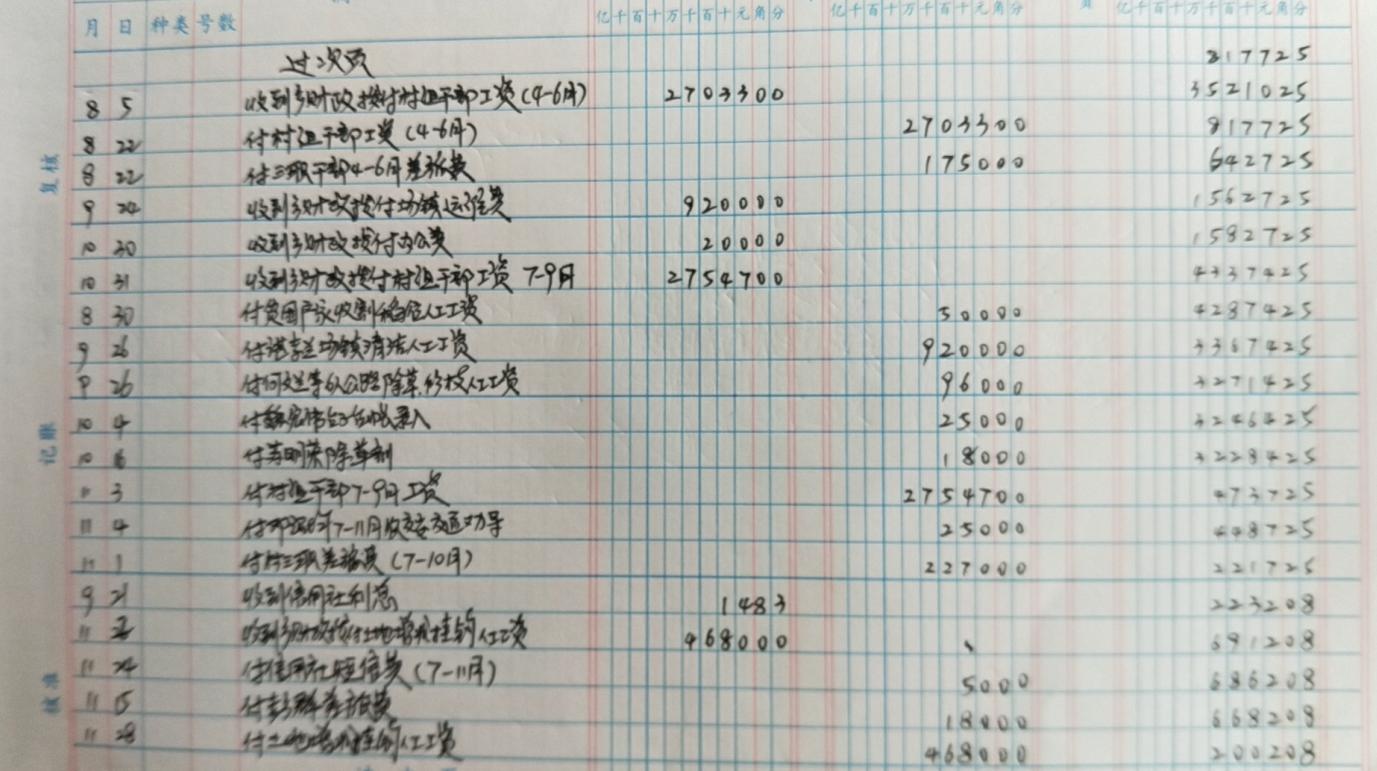 月 日 种类 号数 亿千百十万千百十元角分 亿千百十万千百十元角分 亿千百十万千百十元角分
过次页 817725
8 5 收到乡财政拨付村组干部工资(4-6月) 2703300 3521025
8 22 付村组干部工资(4-6月) 2703300 817725
8 22 付三职干部4-6月差旅费 175000 642725
9 24 收到乡财政拨付场镇运行费 920000 1562725
10 30 收到乡财政拨付办公费 20000 1582725
10 31 收到乡财政拨付村组干部工资 7-9月 2754700 4337425
8 30 付贫困户家收割稻谷人工工资 50000 4287425
9 26 付谌李兰场镇清洁人工工资 920000 3367425
9 26 付何 等6人公路除草,修枝人工工资 96000 3271425
10 4 付 台账录入 25000 3246425
10 6 付 明荣除草剂 18000 3228425
11 3 付村组干部7-9月工资 2754700 473725
11 4 付 7-11月农交安交通劝导 25000 448725
11 1 付 三职差旅费(7-10月) 227000 221725
9 21 收到信用社利息 1483 223208
11 收到乡财政拨付土地增减挂钩人工资 468000 691208
11 24 付信用社短信费(7-11月) 5000 686208
11 15 付彭群差旅费 18000 668208
11 28 付土地增减挂钩人工资 468000 200208
复核
记账
核准